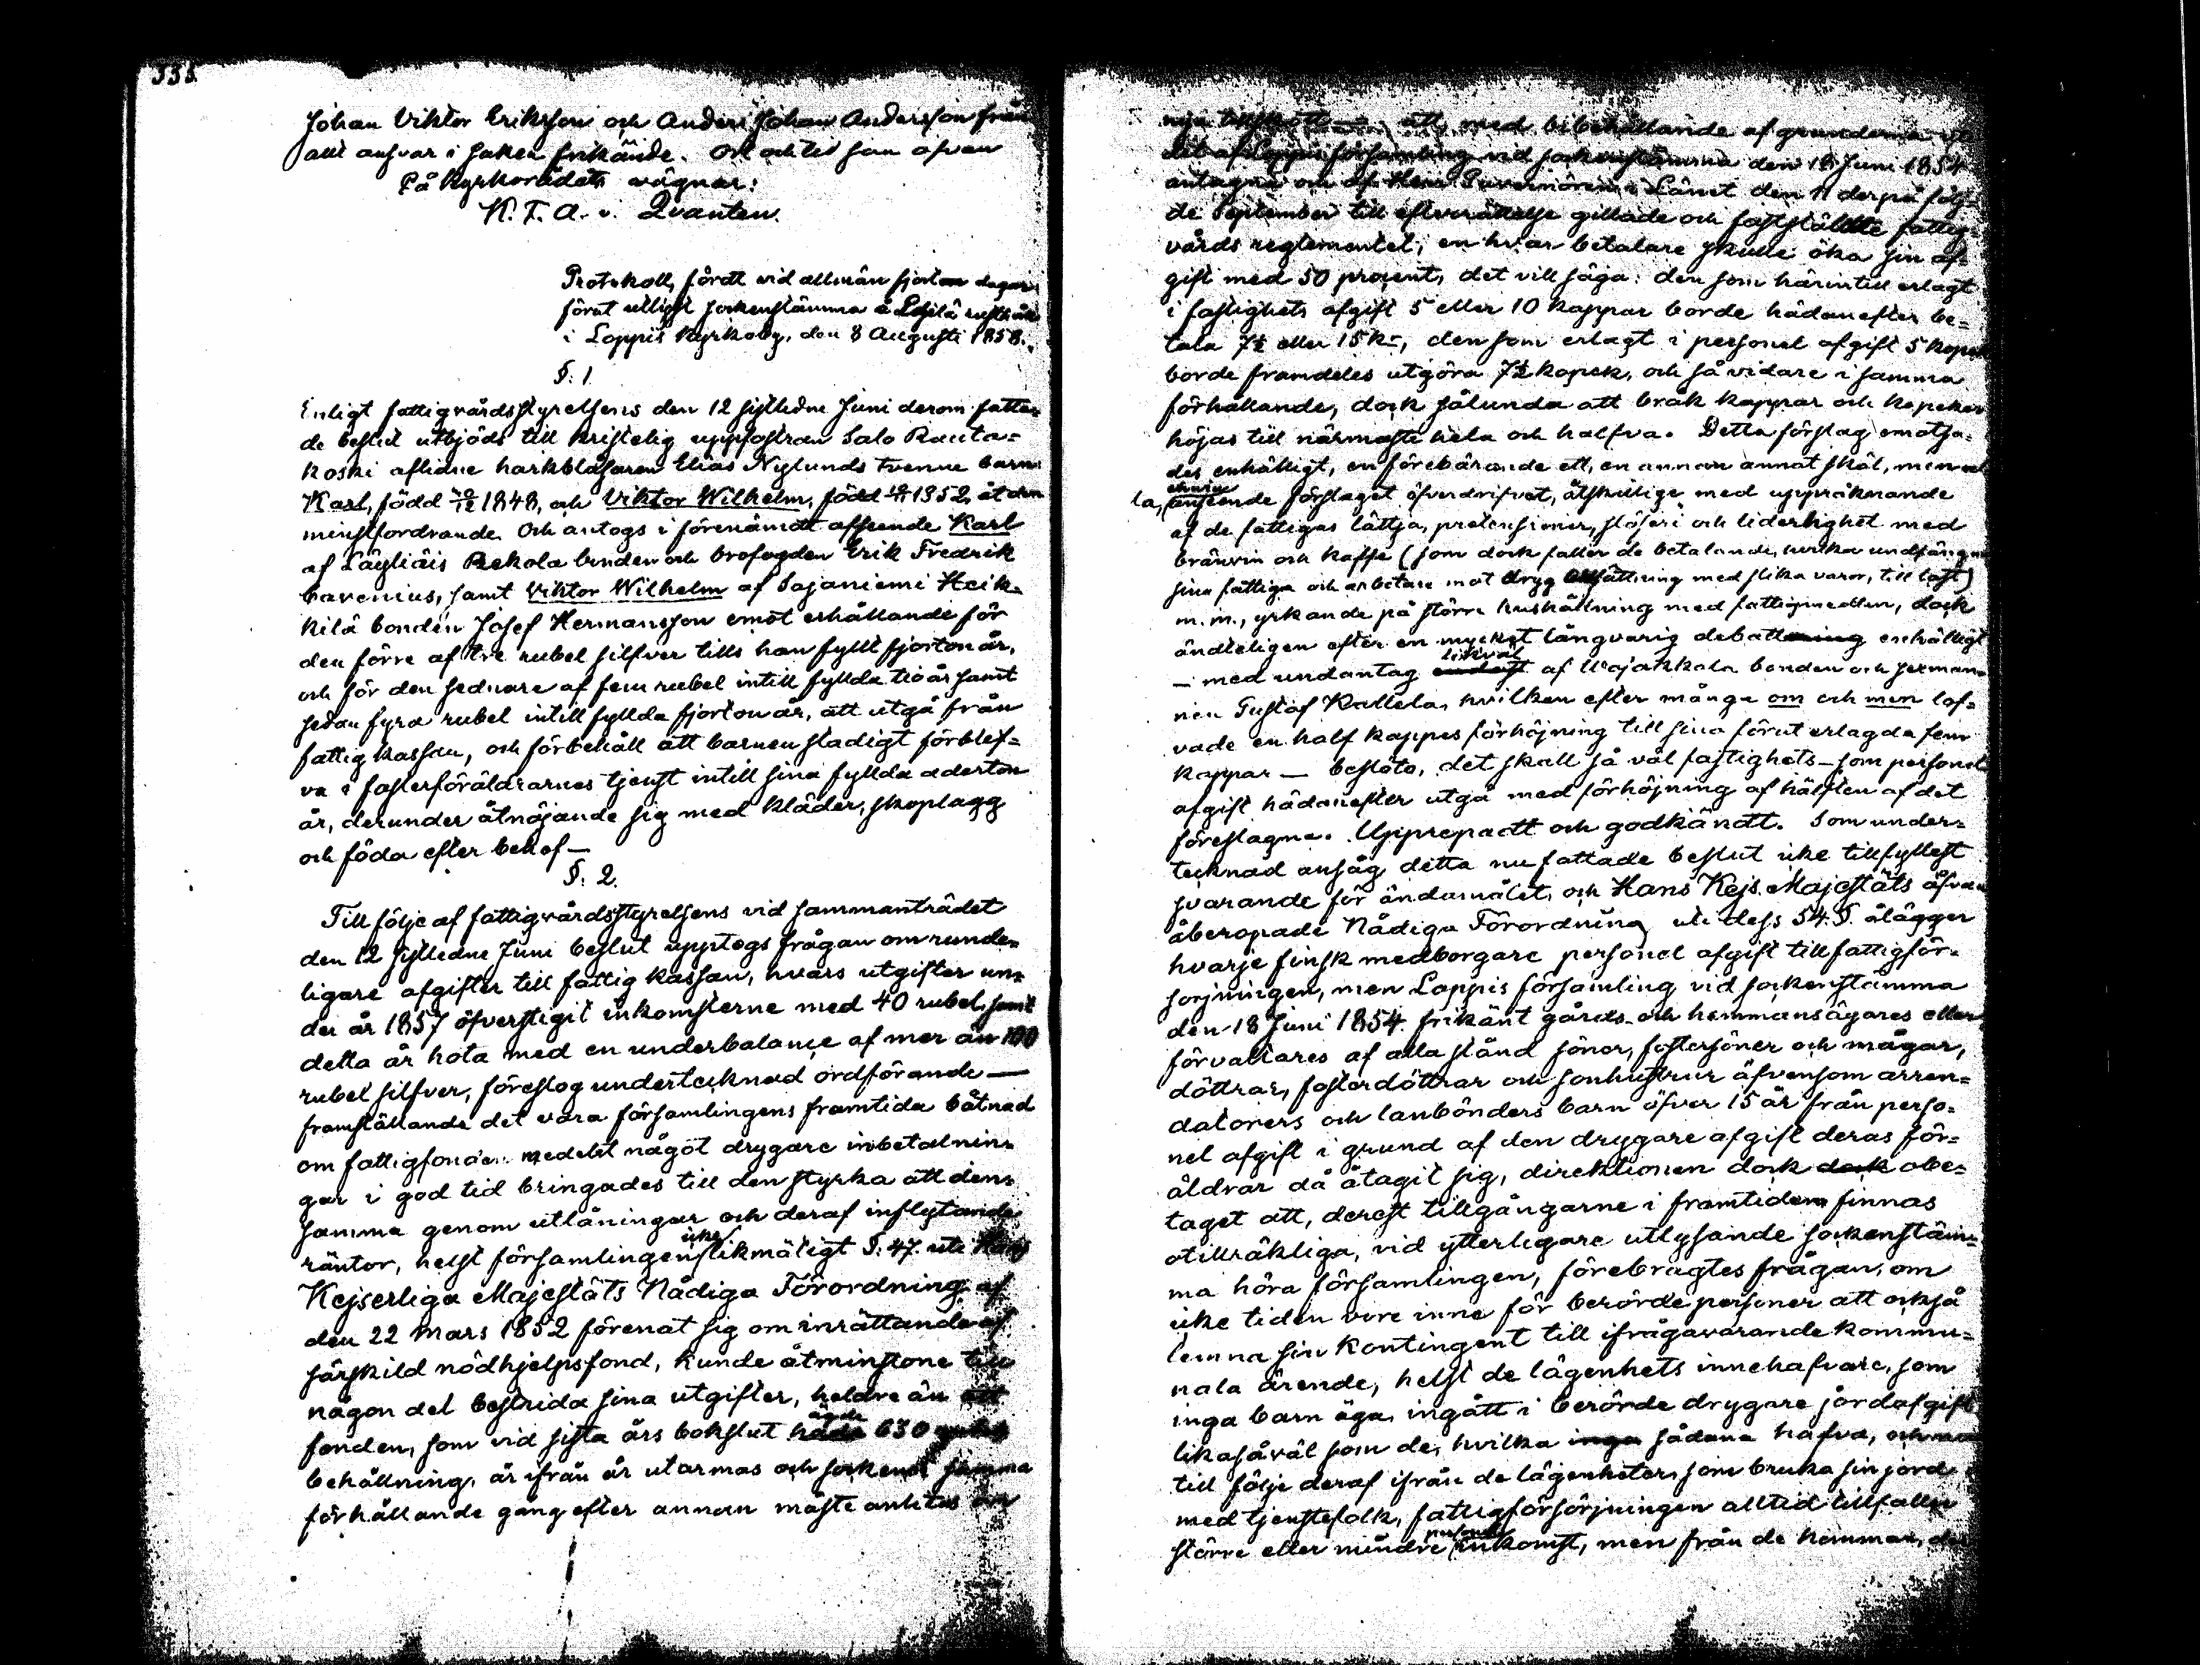 335.
Johan Viktor Eriksson och Anders Johan Andersson från
allt ansvar i saken frikände. Ort och tid som ofvan
På Kyrkorådets vägnar:
K. F. A. v. Qvanten.
Protokoll, fördt vid allmän fjorton dagar
förut utlyst sockenstämma å rusthåll
i Loppis Kyrkoby, den 8 Augusti 1858.
§: 1.
Enligt fattigvårdsstyrelsens den 12 sistledne Juni derom fattade
beslut utbjöds till kristelig uppfostran Salo Rauta=
koski aflidne harkblåsaren Elias Nylunds tvenne barn
Karl, född 1848, och Viktor Wilhelm, född 1852, åt den
minstfordrande. Och antogs i förenämdt afseende Karl
af Läyliäis Rekola bonden och brofogden Erik Fredrik
bavenius, samt Viktor Wilhelm af Sajaniemi Heik=
kilä bonden Josef Hermansson emot erhållande för
den förre af tre rubel silfver tills han fyllt fjorton år,
och för den sednare af fem rubel intill fyllda tio år samt
sedan fyra rubel intill fyllda fjorton år, att utgå från
fattigkassan, och förbehåll att barnen stadigt förblef=
ve i fosterföräldrarnes tjenst intill sina fyllda aderton
år, derunder åtnöjande sig med kläder, skoplagg
och föda efter behof —
§: 2.
Till följe af fattigvårdsstyrelsens vid sammanträdet
den 12 sistledne Juni beslut upptogs frågan om runde=
ligare afgifter till fattigkassan, hvars utgifter un=
der år 1857 öfverstigit inkomsterne med 40 rubel, samt
detta år hota med en underbalance af mer än 100
rubel silfver, föreslog undertecknad ordförande —
framställande det vara församlingens framtida båtnad
om fattigfonden medelst något drygare inbetalnin=
gar i god tid bringades till den styrka att den=
samma genom utlåningar och deraf inflytande
räntor, helst församlingen icke likmätigt §: 47. uti Hans
Kejserliga Majestäts Nådiga Förordning af
den 22 Mars 1852 förenat sig om inrättande af
särskild nödhjelpsfond, kunde åtminstone till
någon del bestrida sina utgifter, heldre än att
fonden, som vid sista års bokslut hade ägde 630 rubel
behållning, år ifrån år utarmas och socknen samma
förhållande gång efter annan måste anlitas om
nya tillskott — att, med bibehållande af grunderna
det af Loppis församling vid sockenstämma den 18 Juni 1854
antagna och af Herr Guvernören i Länet den 11 derpå följ=
de September till efterrättelse gillade och fastställdte fattig=
vårds reglementet, en hvar betalare skulle öka sin af=
gift med 50 procent, det vill säga: den som härintill erlagt
i fastighets afgift 5 eller 10 kappar borde hädanefter be=
tala 7½ eller 15 k–, den som erlagt i personel afgift 5 kopek
borde framdeles utgöra 7½ kopek, och så vidare i samma
förhållande, dock sålunda att bråk kappar och kopeker
höjas till närmaste hela och halfva. Detta förslag emotsa=
des enhälligt, en förebärande ett, en annan annat skäl, men al
la, ehuru ansende förslaget öfverdrifvet, åtskillige med uppräknande
af de fattigas lättja, pretensioner, slöseri och liderlighet med
bränvin och kaffe (som dock faller de betalande, hvilka undfängna
sina fattiga och arbetare mot dryg med slika varor, till last)
m. m., yrkande på större hushållning med fattigmedlen, dock
ändteligen efter en mycket långvarig debattering enhälligt
— med undantag endast likväl af Wojakkala bonden och serman=
nen Gustaf Kallela, hvilken efter många om och men lof=
vade en half kappes förhöjning till sina förut erlagda fem
kappar — beslöto, det skall så väl fastighets- som personel
afgift hädanefter utgå med förhöjning af hälften af det
föreslagna. Upprepadt och godkändt. Som under=
tecknad ansåg detta nu fattade beslut icke tillfyllest
svarande för ändamålet, och Hans Kejs. Majestäts åfvan
åberopade Nådiga Förordning uti dess 54. §. ålägger
hvarje finsk medborgare personel afgift till fattigför=
sörjningen, men Loppis församling vid sockenstämma
den 18 Juni 1854. frikänt gårds- och hemmansägares eller
förvaltares af alla stånd söner, fostersöner och mågar,
döttrar, fosterdöttrar och sonhustrur äfvensom arren=
datorers och lanbönders barn öfver 15 år från perso=
nel afgift i grund af den drygare afgift deras för=
äldrar då åtagit sig, direktionen dock dock obe=
taget att, derest tillgångarne i framtiden finnas
otillräkliga, vid ytterligare utlysande sockenstäm=
ma höra församlingen, förebragtes frågan, om
icke tiden vore inne för berörde personer att också
lemna sin kontingent till ifrågavarande kommu=
nala ärende, helst de lägenhets innehafvare, som
inga barn äga, ingått i berörde drygare jordafgift
likasåväl som de, hvilka inga sådana hafva, och man
till följe deraf ifrån de lägenheter, som bruka sin jord
med tjenstefolk, fattigförsörjningen alltid tillfaller
större eller mindre personel inkomst, men från de hemman, der